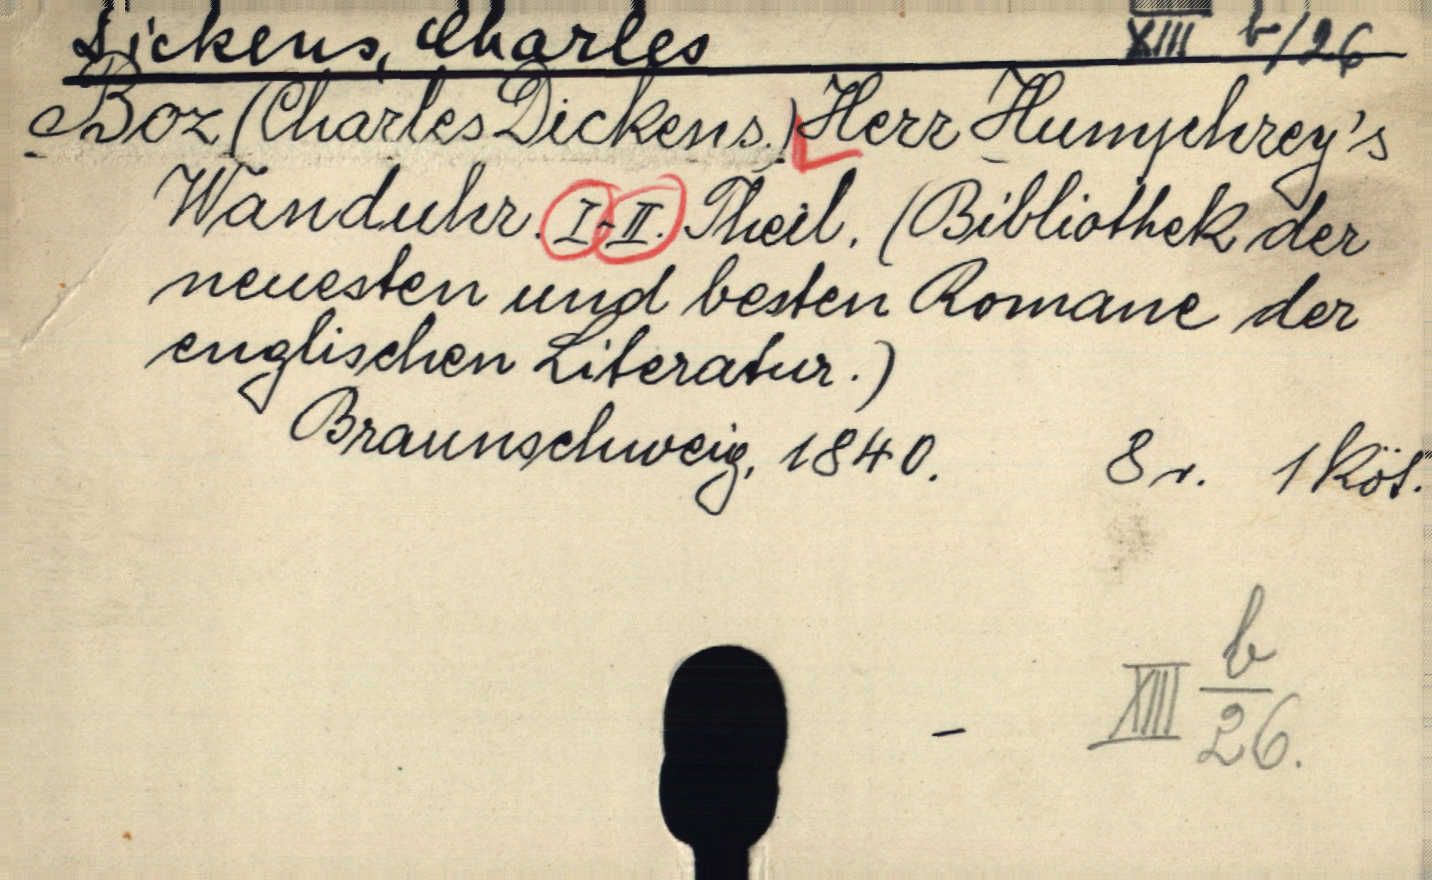 Dickens, Charles XIII b/26
Boz (Charles Dickens.) Herr Humphrey's
Wanduhr. I-II. Theil. (Bibliothek der
neuesten und besten Romane der
englischen Literatur.)
Braunschweig, 1840. 8r. 1 köt.
XIII b/26.